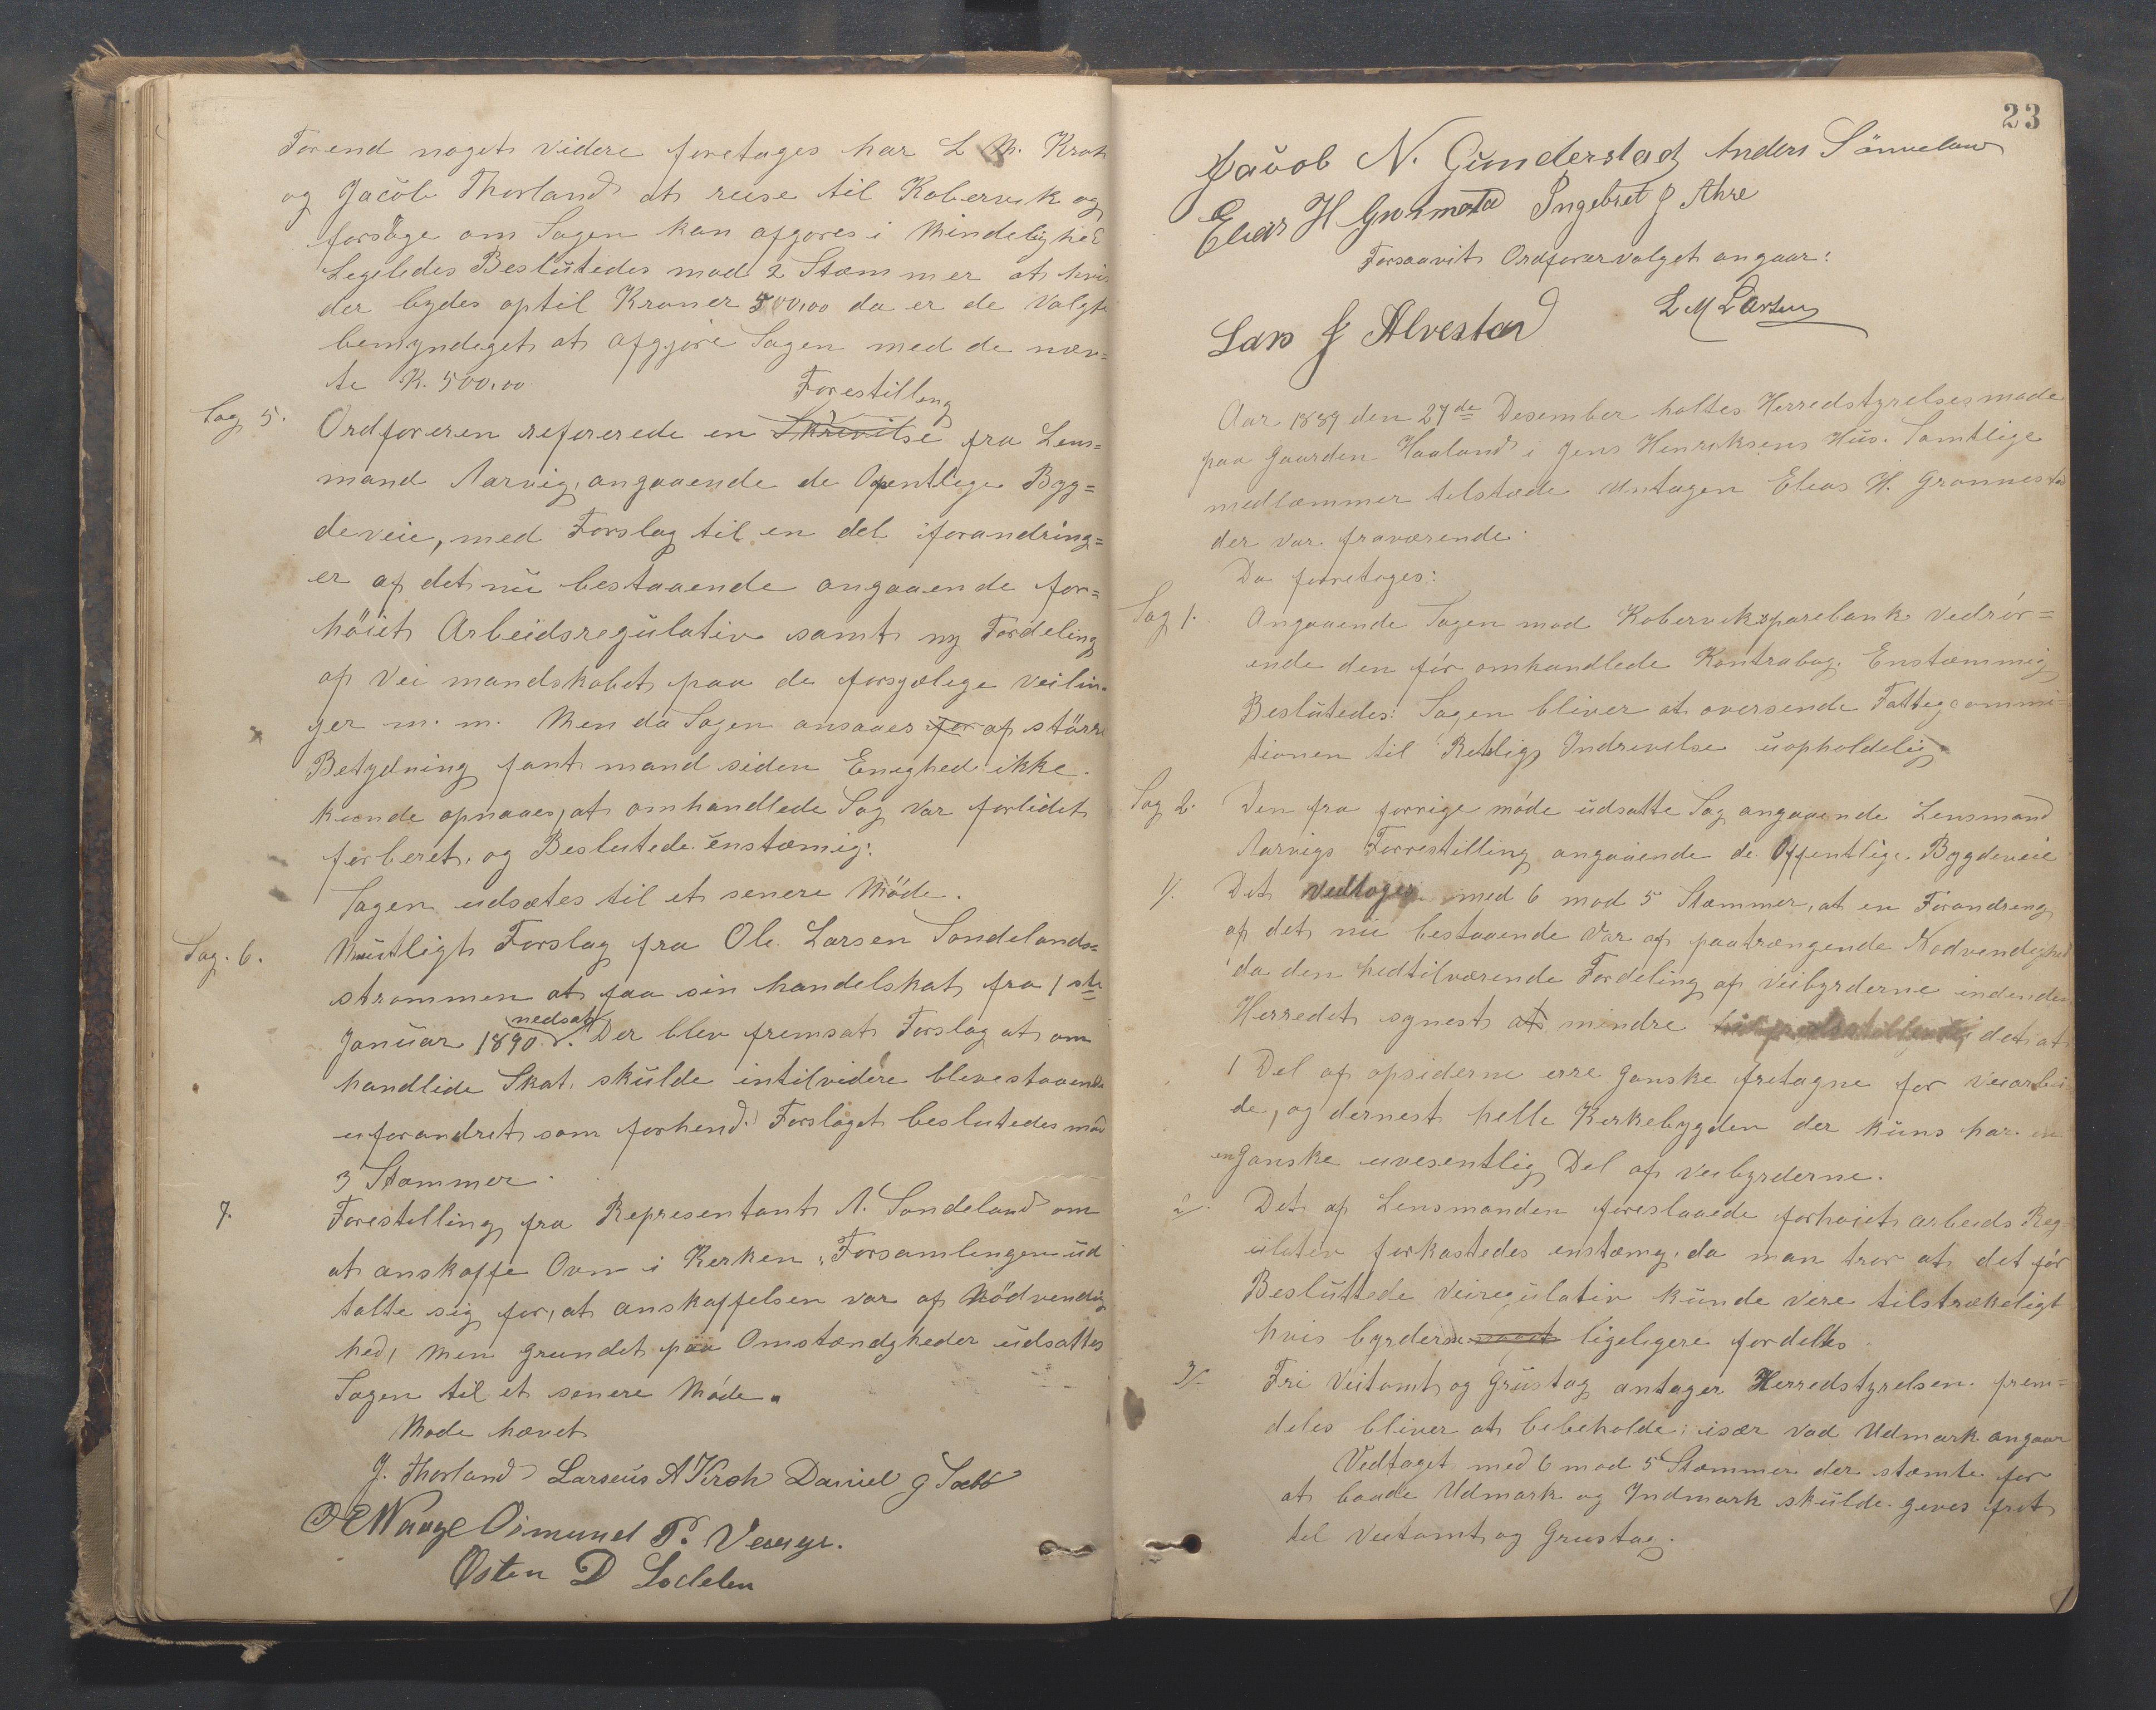 Forend noget videre foretages har L M. Kroh
og Jacob Thorland at reise til Kobervik og
forsöge om Sagen kan afgores i Mindelighed
Legeledes Beslutedes mod 2 Stæmmer at hvis
der bydes optil Kroner 500,00 da er de Valgte
bemyndeget at afgjøre Sagen med de nævn=
te K. 500,00.
Forestilling
Sag 5. Ordforeren refererede en Skrivilse fra Lens=
mand Aarvig, angaaende de Opentlege Byg=
deveie, med Forslag til en del forandring=
er af det nu bestaaende angaaende for=
höiet Arbeidsregulativ samt ny Fordeling
af Vei mandskabet paa de forsgelege veilin=
ger m. m. Men da Sagen ansaaes for af störe
Betydning fant mand siden Enighed ikke
kunde opnaaes, at omhandlede Sag var forlidet
forberet. og Beslutede enstæmig:
Sagen udsætes til et senere Möde.
Sag. 6. Muntligt Forslag fra Ole Larsen Sandelands=
strømmen at faa sin handelskat fra 1ste
nedsat
Januar 1890. Der blev fremsat Forslag at om
handlede Skat skulde intilvidere blivestaaende
uforandret som forhend. Forslaget beslutedes mod
3 Stæmmer.
7. Forestilling fra Representant A. Sandeland om
at anskaffe Ovn i Kerken, Forsamlingen ud
talte sig for, at anskaffelsen var af Nödvendig
hed, men grundet paa Omstændgheder udsattes
Sagen til et senere Möde.
Møde hævet
J. Thorland Larseus A Kroh Daniel J Sæbø
O E Waage Osmund P. Veage.
Østen D Lodelen
23
Jacob N. Gunderstad Anders Sönnelaw
Elias H Grønnestad Ingebret J Ahre
Forsaavit Ordforervalget angaar:
L M Larsen
Lars J Alvestad
Aar 1889 den 27de Desember holtes Herredstyrelsesmøde
paa Gaarden Haaland i Jens Henriksens Hus. Samtlige
medlæmmer tilstæde untagen Elias H. Grønnestad
der var fraværende.
Da foretoges:
Sag 1. Angaaende Sagen mod Koberviksparebank vedrör=
ende den för omhandlede Kontrabog. Enstæmmig
Beslutedes: Sagen bliver at oversende Fattegcommi
tionen til Retslig Indrivelse uopholdelig.
Sag 2. Den fra forrige møde udsatte Sag angaaende Lensmand
Aarvigs Forrestilling angaaende de Offentlige Bygdeveie
1/. Det vedtoges med 6 mod 5 Stæmmer, at en Forandreng
af det nu bestaaende Var af paatrængende Nødvendighed
da den hedtilværende Fordeling af Veibyrderne indenden
Herredet synest at mindre det at
1 Del af opsiderne erre ganske fretagne for veiarbei
de, og dernest helle Kerkebygden der kuns har en
en ganske uvesentlig Del af veibyrderne.
2/. Det af Lensmanden foreslaaede forhøiet arbeids Reg=
ulativ forkastedes enstæmg, da man tror at det för
Besluttede veiregulativ kunde vere tilstrækeligt
hvis byrderne ligeligere fordeltes.
3/. Fri Veitomt og Grustag antager Herredstyrelsen frem=
deles bliver at bebeholde; især vad Udmark angaar
Vedtaget med 6 mod 5 Stæmmer der stæmte for
at baade Udmark og Indmark skulde geves frit
til Veitomt og Grustag.